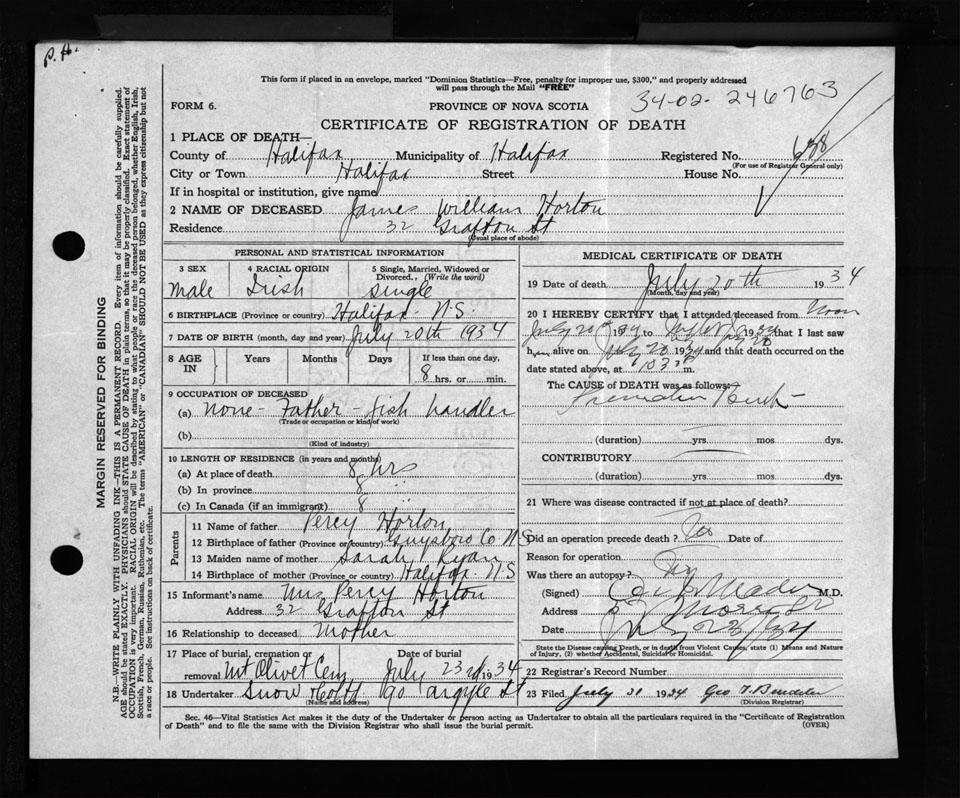 P.H.
This form if placed in an envelope, marked "Dominion Statistics—Free, penalty for improper use, $300," and properly addressed
will pass through the Mail "FREE"
FORM 6.
PROVINCE OF NOVA SCOTIA
34-02-246763
CERTIFICATE OF REGISTRATION OF DEATH
1 PLACE OF DEATH—
County of Halifax Municipality of Halifax Registered No. 
(For use of Registrar General only)
City or Town Halifax Street House No.
If in hospital or institution, give name
2 NAME OF DECEASED James William Horton
Residence 32 Grafton St
(Usual place of abode)
PERSONAL AND STATISTICAL INFORMATION
3 SEX 4 RACIAL ORIGIN 5 Single, Married, Widowed or Divorced. (Write the word)
male Irish single
6 BIRTHPLACE (Province or country) Halifax N.S.
7 DATE OF BIRTH (month, day and year) July 20th 1934
8 AGE IN Years Months Days If less than one day,
8 hrs. or min.
9 OCCUPATION OF DECEASED
(a) None - Father - fish handler
(Trade or occupation or kind of work)
(b)
(Kind of industry)
10 LENGTH OF RESIDENCE (in years and months)
(a) At place of death 8 hrs
(b) In province 8 "
(c) In Canada (if an immigrant) 8 "
Parents
11 Name of father Percy Horton
12 Birthplace of father (Province or country) Guysboro Co N S
13 Maiden name of mother Sarah Ryan
14 Birthplace of mother (Province or country) Halifax N S
15 Informant's name Mrs Percy Horton
Address 32 Grafton St
16 Relationship to deceased Mother
17 Place of burial, cremation or removal Mt Olivet Cem Date of burial July 23rd 1934
18 Undertaker Snow & Co Ltd 90 Argyle St
(Name and address)
MEDICAL CERTIFICATE OF DEATH
19 Date of death July 20th 1934
(Month, day and year)
20 I HEREBY CERTIFY that I attended deceased from Noon
July 20 1934 to July 20 1934 that I last saw
h alive on July 20 1934 and that death occurred on the
date stated above, at m.
The CAUSE OF DEATH was as follows:
Premature Birth
(duration) yrs. mos. dys.
CONTRIBUTORY
(duration) yrs. mos. dys.
21 Where was disease contracted if not at place of death?
Did an operation precede death? No Date of
Reason for operation
Was there an autopsy?
(Signed) M.D.
Address Morris St
Date July 23/34
State the Disease causing Death, or in death from Violent Causes, state (1) Means and Nature
of Injury, (2) whether Accidental, Suicidal or Homicidal.
22 Registrar's Record Number
23 Filed July 1934 Geo
(Division Registrar)
Sec. 46—Vital Statistics Act makes it the duty of the Undertaker or person acting as Undertaker to obtain all the particulars required in the "Certificate of Registration
of Death" and to file the same with the Division Registrar who shall issue the burial permit. (OVER)
MARGIN RESERVED FOR BINDING
N.B.—WRITE PLAINLY WITH UNFADING INK—THIS IS A PERMANENT RECORD. Every item of information should be carefully supplied.
AGE should be stated EXACTLY. PHYSICIANS should STATE CAUSE OF DEATH in plain terms, so that it may be properly classified. Exact statement of
OCCUPATION is very important. RACIAL ORIGIN will be described by stating to what people or race the deceased person belonged, whether English, Irish,
Scottish, French, German, Russian, Ruthenian, etc. The terms "AMERICAN" or "CANADIAN" SHOULD NOT BE USED as they express citizenship but not
a race or people. See instructions on back of certificate.